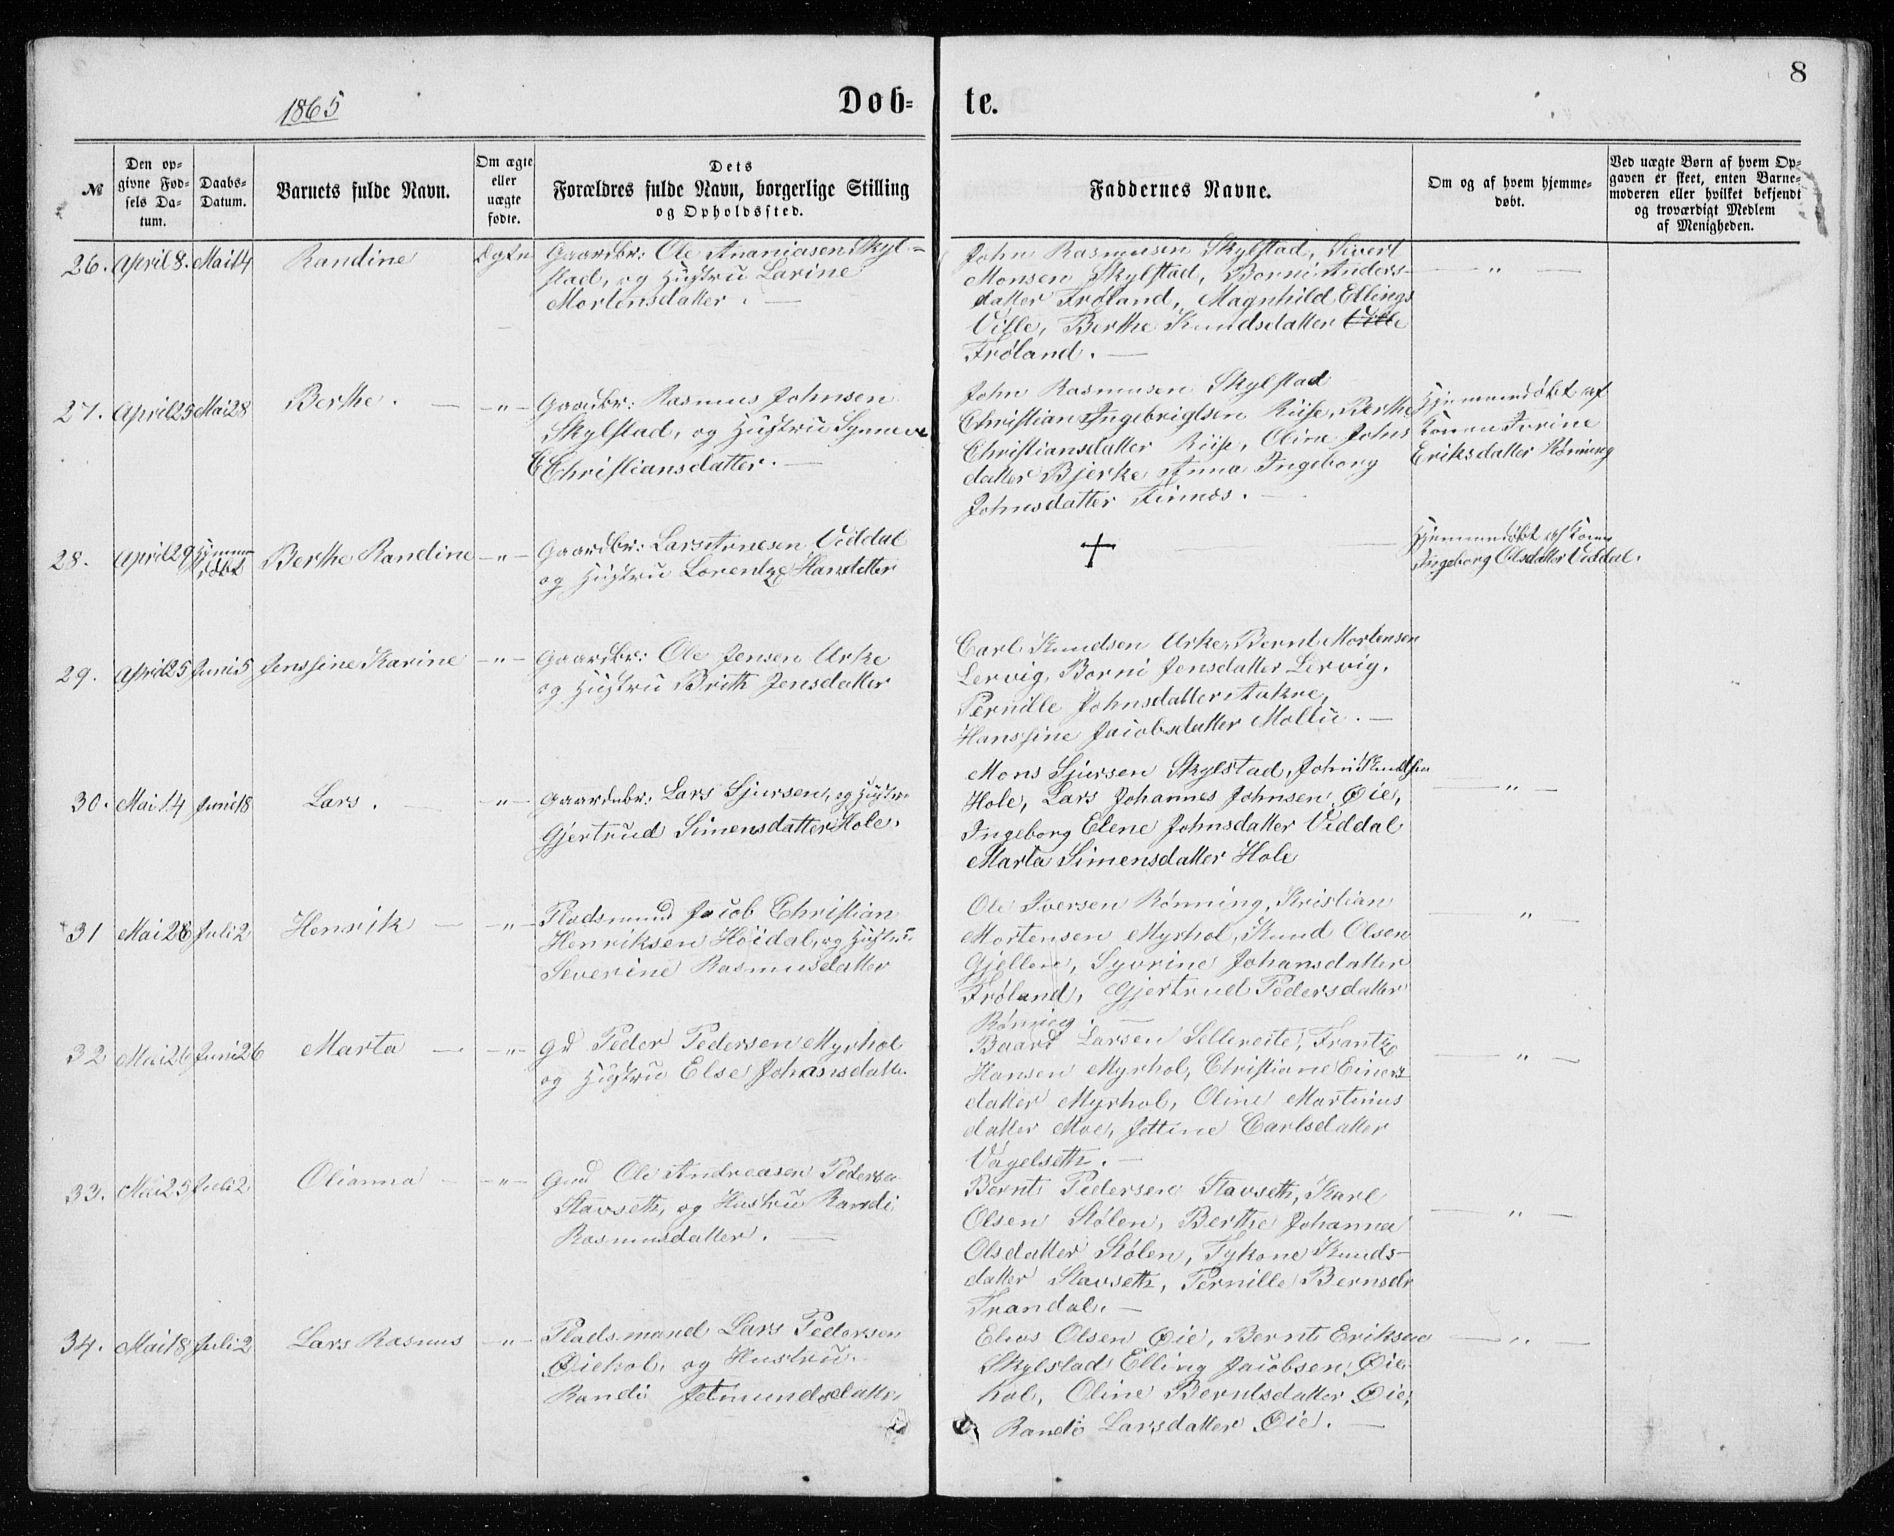 8
1865
Døb-
te.
№
Den op-
givne Fød-
sels Da-
tum.
Daabs-
Datum.
Barnets fulde Navn.
Om ægte
eller
uægte
fødte.
Dets
Forældres fulde Navn, borgerlige Stilling
og Opholdssted.
Faddernes Navne.
Om og af hvem hjemme-
døbt.
Ved uægte Børn af hvem Op-
gaven er skeet, enten Barne-
moderen eller hvilket bekjendt
og troværdigt Medlem
af Menigheden.
26. April 8. Mai 14 Randine Egte
Gaardbr: Ole Ananiasen Skyl-
stad, og Hustru Larine
Mortensdatter. —
John Rasmusen Skylstad, Sivert
Monsen Skylstad, Borni Anders-
datter Frøland, Magnhild Ellings
Ville, Berthe Knudsdatter Ville
Frøland. —
— " —
27. April 25 Mai 28 Berthe. — — " —
Gaardbr: Rasmus Johnsen
Skylstad, og Hustru Synneve
Christiansdatter. —
John Rasmusen Skylstad
Christian Ingebrigtsen Riise, Berthe
Christiansdatter Riise, Oline Johns
datter Bjerke Anna Ingeborg
Johnsdatter Finnes. —
Hjemmedøbt af
Konen Ivrine
Eriksdatter Rønning
28. April 29 Hjemme
døbt
Berthe Randine — " —
Gaardbr: Lars Arnesen Viddal
og Hustru Lorentze Hansdatter
+ —
Hjemmedøbt af Kone
Ingeborg Olsdatter Viddal.
29. April 25 Juni 5 Jenssine Karine — " —
Gaardbr: Ole Jensen Urke
og Hustru Brith Jensdatter
Carl Knudsen Urke, Bernt Mortensen
Lervig, Borni Jensdatter Lervig,
Pernille Johnsdatter Aakre,
Hanssine Jacobsdatter Mollu. —
30. Mai 14 Juni 18 Lars. — " —
Gaardbr: Lars Sjursen, og Hustru
Gjertrud Simensdatter Hole.
Mons Sjursen Skylstad, John Knudsen
Hole, Lars Johannes Johnsen Øie,
Ingeborg Elene Johnsdatter Viddal
Marta Simensdatter Hole
— " —
31 Mai 28 Juli 2 Henrik — — " —
Pladsmand Jacob Christian
Henriksen Høidal, og Hustru
Severine Rasmusdatter
Ole Iversen Rønning, Kristian
Mortensen Myrhol, Knud Olsen
Gjellen, Syvrine Johansdatter
Frøland, Gjertrud Pedersdatter
Rønnieg. —
— " —
32 Mai 26 Juni 26 Marta — — " —
Gd Peder Pedersen Myrhol
og Hustru Else Johansdatte.
Baard Larsen Sellereite, Frantze
Hansen Myrhol, Christiane Einers
datter Myrhol, Oline Martinus
datter Moe, Jettine Carlsdatter
Vagelseth. —
— " —
33. Mai 25 Juli 2 Olianna — — " —
Gmd Ole Andreasen Pedersen
Stavseth, og Hustru Randi
Rasmusdatter. —
Bernt Pedersen Stavseth, Karl
Olsen Stølen, Berthe Johanna
Olsdatter Stølen, Sykone Knuds-
datter Stavseth, Pernille Bernsdr
Trandal. —
— " —
34. Mai 18 Juli 2 Lars Rasmus — " —
Pladsmand Lars Pedersen
Øiehol, og Hustru
Randi Jetmundsdatter.
Elias Olsen Øie, Bernt Eriksen
Skylstad Elling Jacobsen Øie
hol, Oline Berntsdatter Øie,
Randi Larsdatter Øie. —
— " —